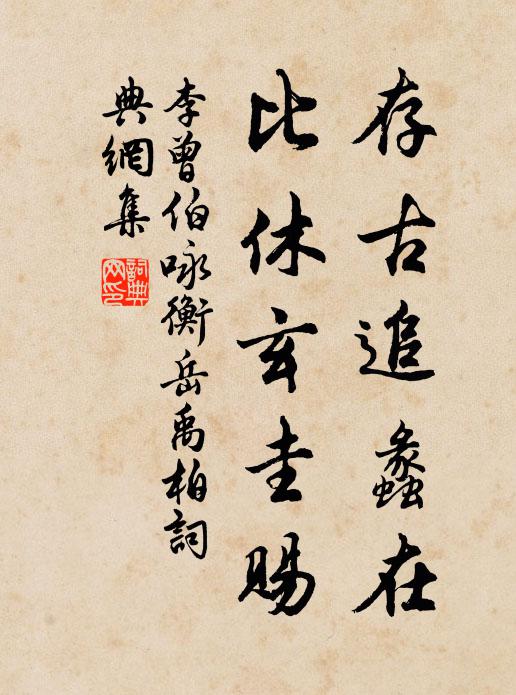 存古追蠡在
比休玄圭賜
李曾伯咏衡岳禹柏詞
典網集
詞典网印